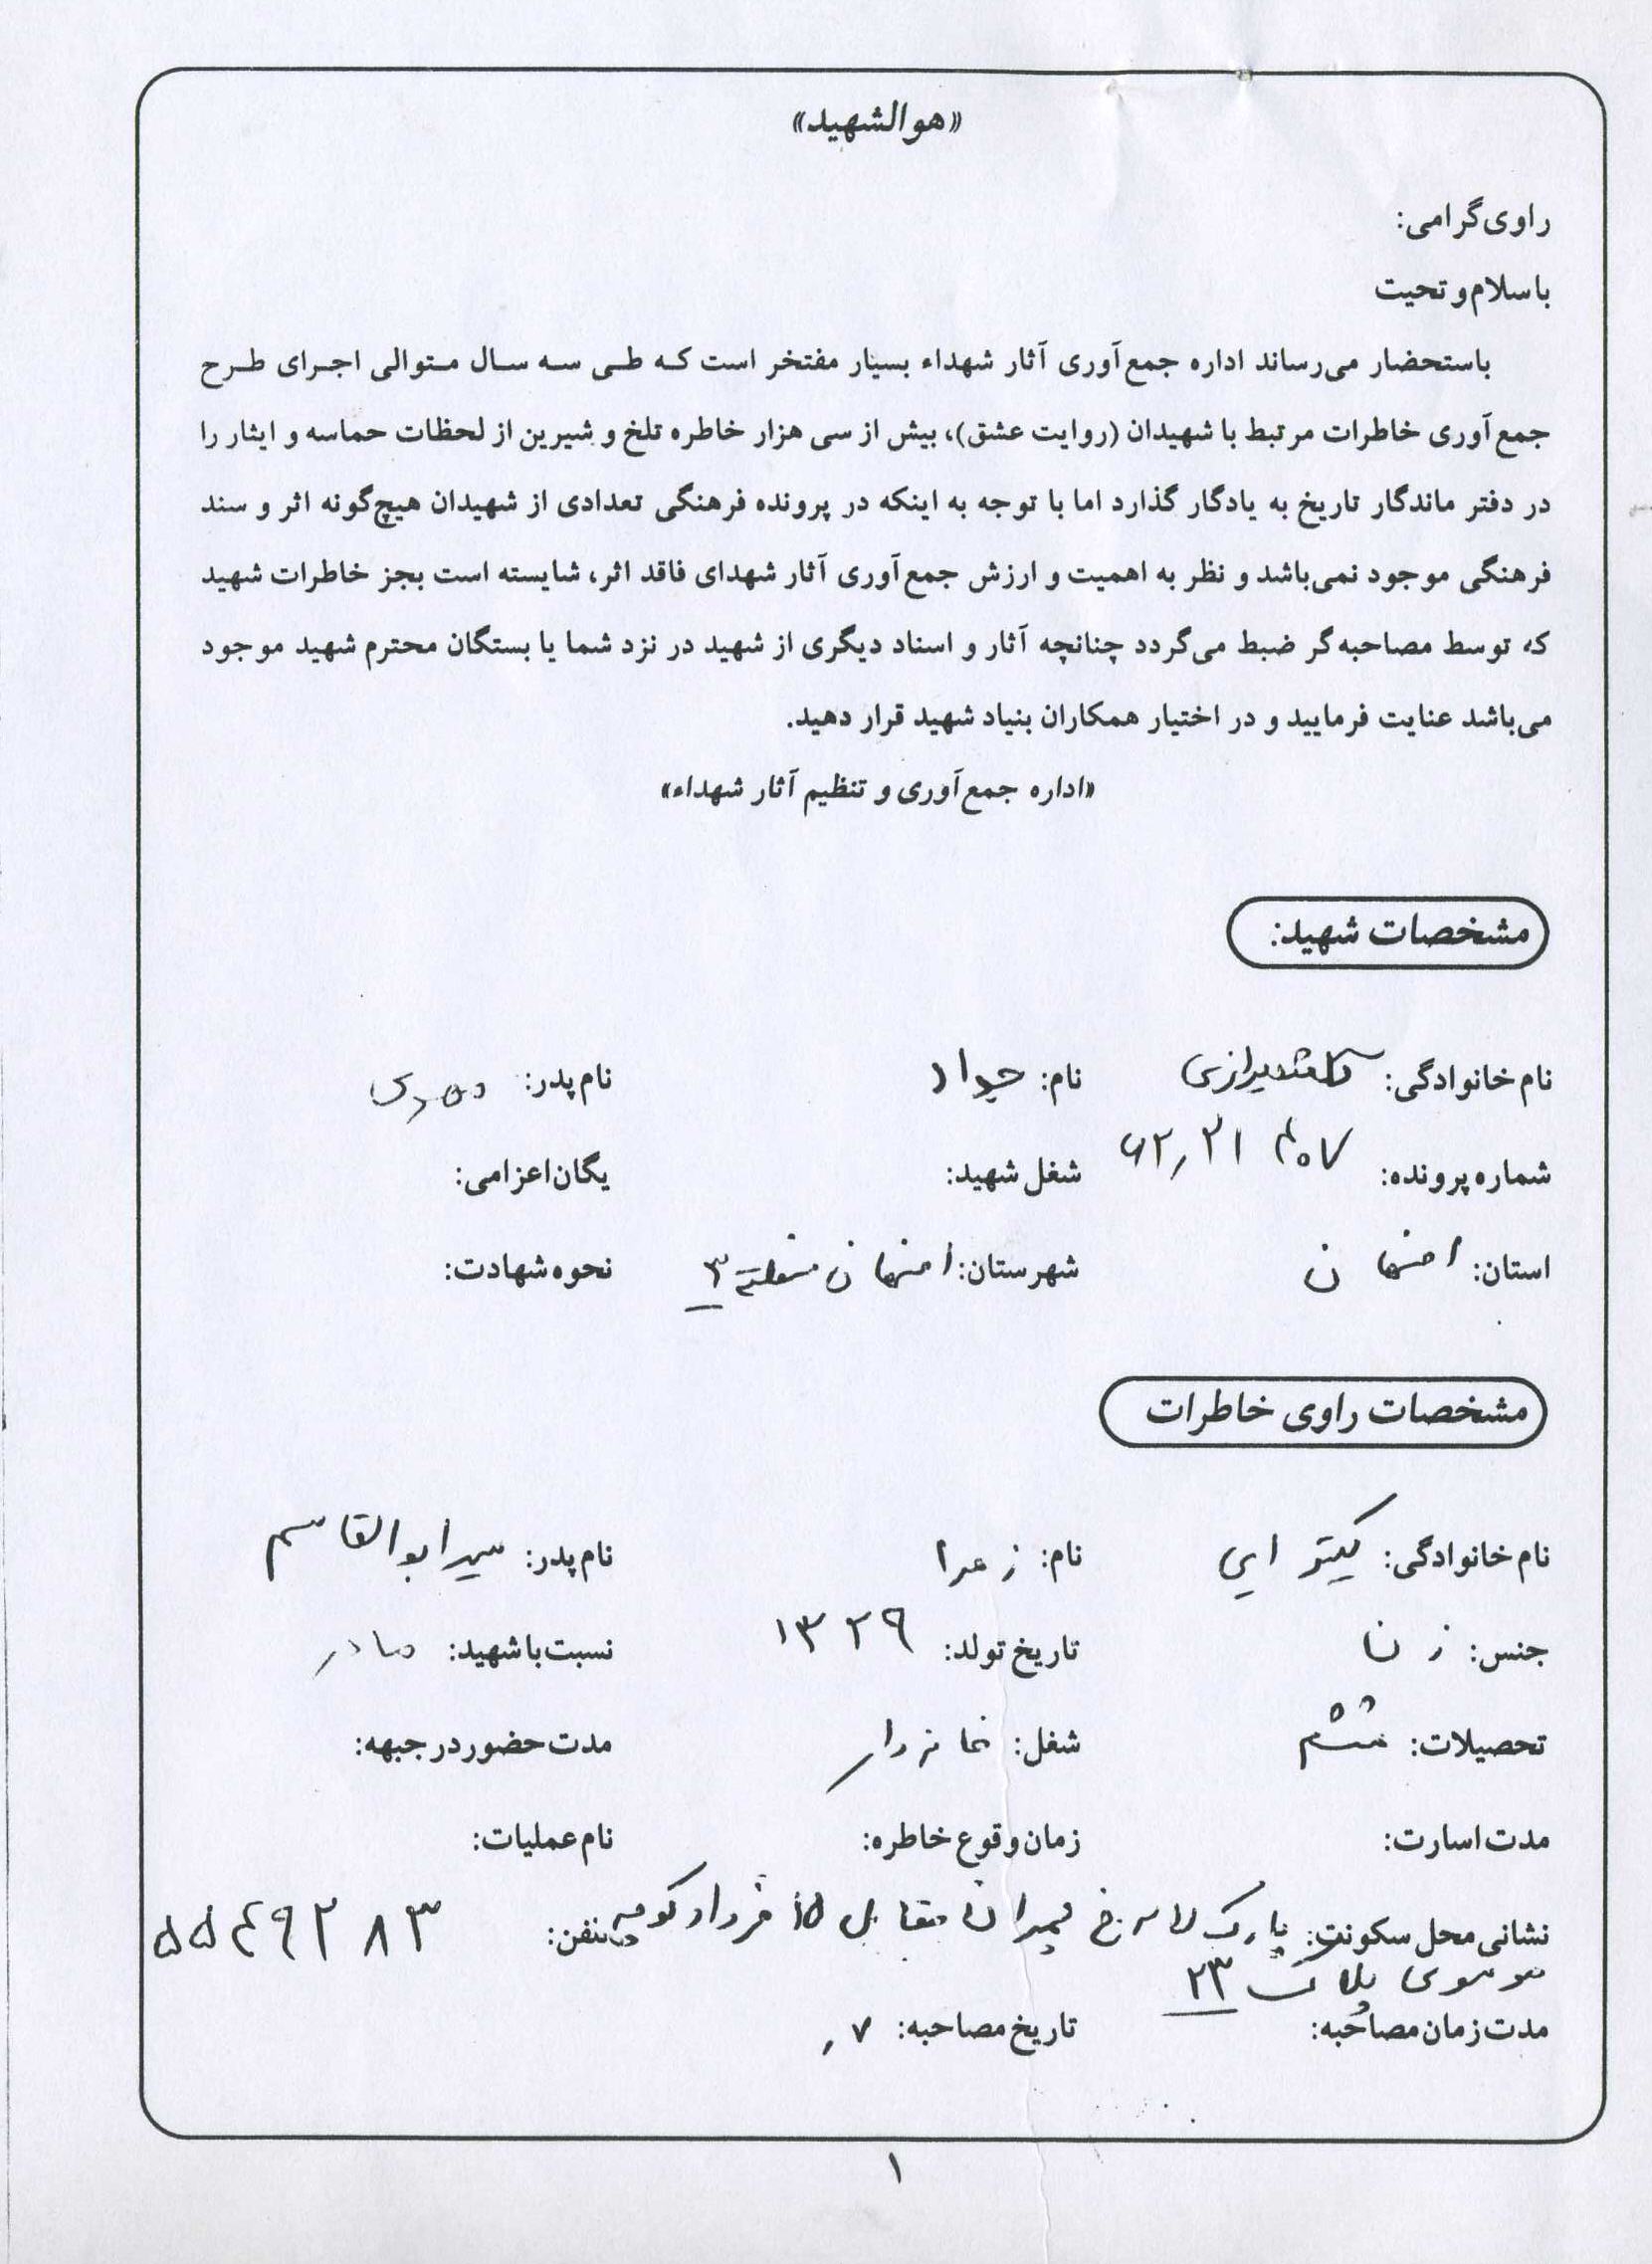 «هوالشهید»
راوی گرامی:
با سلام و تحیت
باستحضار می‌رساند اداره جمع‌آوری آثار شهداء بسیار مفتخر است که طی سه سال متوالی اجرای طرح
جمع‌آوری خاطرات مرتبط با شهیدان (روایت عشق)، بیش از سی هزار خاطره تلخ و شیرین از لحظات حماسه و ایثار را
در دفتر ماندگار تاریخ به یادگار گذارد اما با توجه به اینکه در پرونده فرهنگی تعدادی از شهیدان هیچ‌گونه اثر و سند
فرهنگی موجود نمی‌باشد و نظر به اهمیت و ارزش جمع‌آوری آثار شهدای فاقد اثر، شایسته است بجز خاطرات شهید
که توسط مصاحبه‌گر ضبط می‌گردد چنانچه آثار و اسناد دیگری از شهید در نزد شما یا بستگان محترم شهید موجود
می‌باشد عنایت فرمایید و در اختیار همکاران بنیاد شهید قرار دهید.
«اداره جمع‌آوری و تنظیم آثار شهداء»
مشخصات شهید:
نام خانوادگی: نام: جواد نام پدر:
شماره پرونده: شغل شهید: یگان اعزامی:
استان: اصفهان شهرستان: اصفهان منطقه ۳ نحوه شهادت:
مشخصات راوی خاطرات
نام خانوادگی: نام: زهرا نام پدر: سید ابوالقاسم
جنس: زن تاریخ تولد: ۱۳۲۹ نسبت با شهید: مادر
تحصیلات: ششم شغل: خانه دار مدت حضور در جبهه:
مدت اسارت: زمان وقوع خاطره: نام عملیات:
نشانی محل سکونت: پارک لاله خ مقابل ۱۵ خرداد کوچه تلفن: ۵۵۴۹۲۸۳
موسوی پلاک ۲۳
مدت زمان مصاحبه: تاریخ مصاحبه:
۱